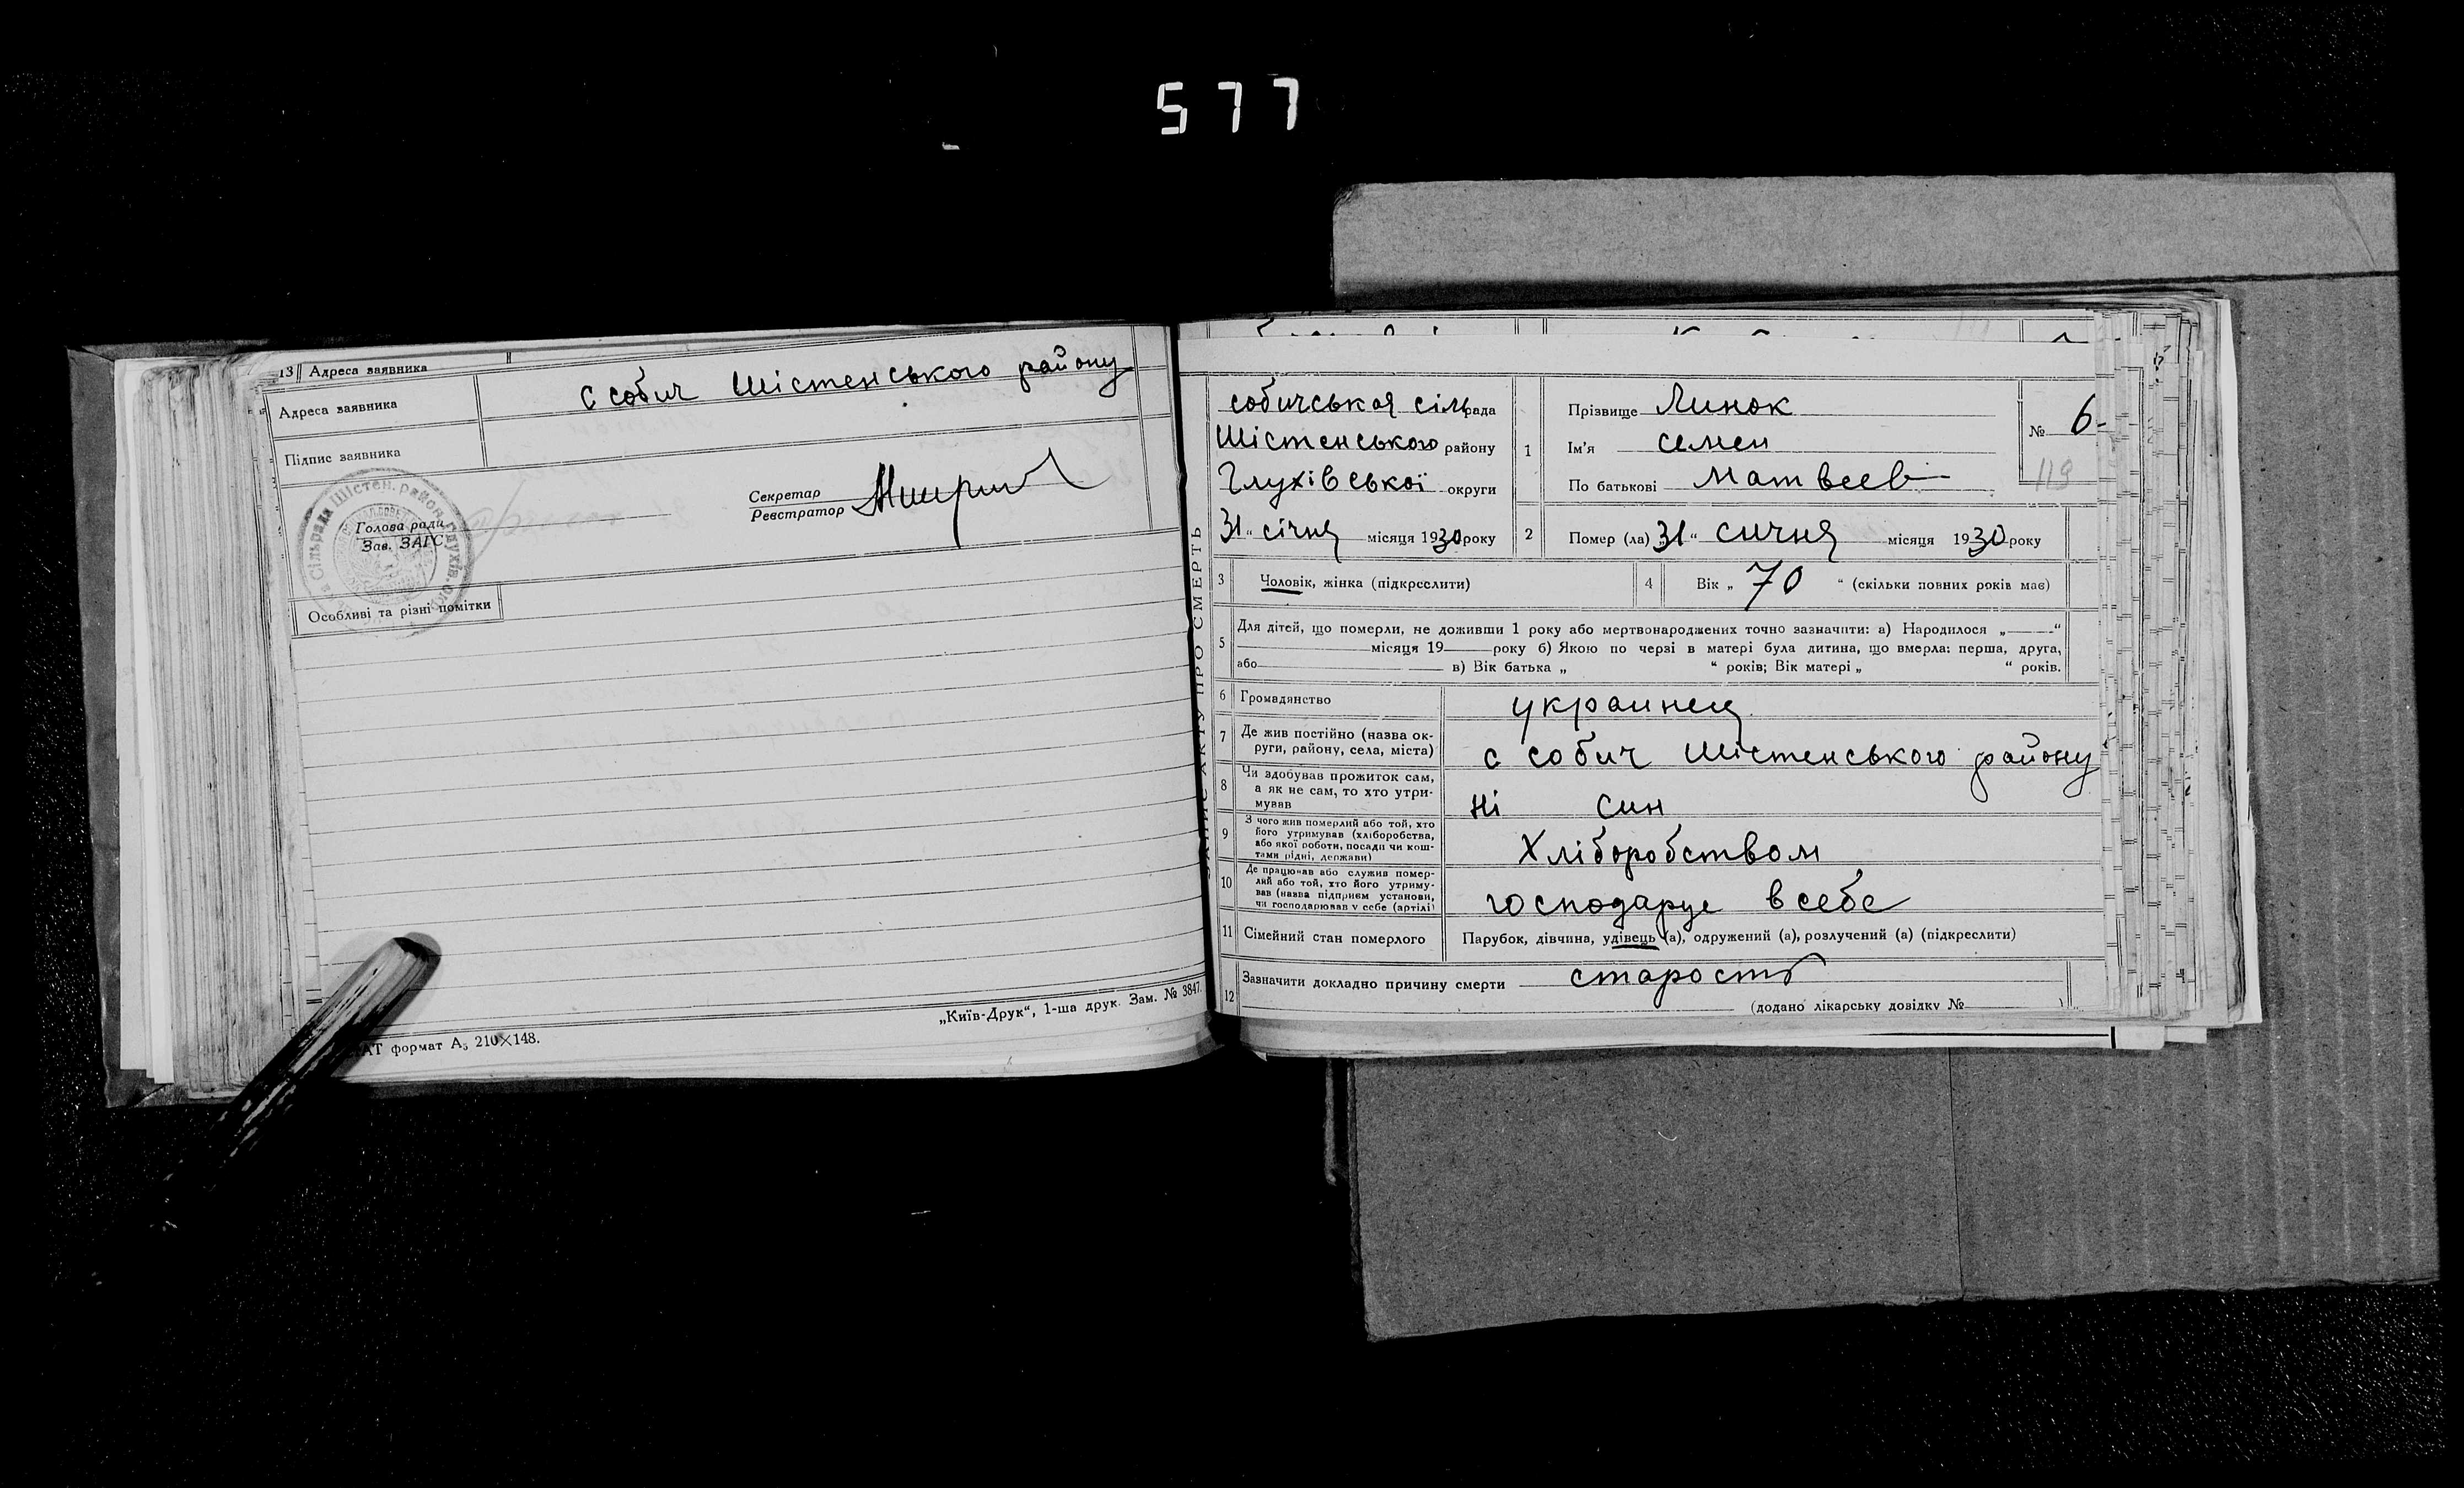 577
13 Адреса заявника
Адреса заявника с собич Шістенського району
Підпис заявника
Секретар
Реєстратор
Голова ради
Зав. ЗАГС
Особливі та різні помітки
„Київ-Друк“, 1-ша друк. Зам. № 3847.
формат А5 210×148.
АКТУ ПРО СМЕРТЬ
собичськая сільрада
Шістенського району
Глухівської округи
31 “ січня місяця 1930 року
1 Прізвище Линок
Ім'я семен
По батькові Матвеев
№ 6
119
2 Помер (ла) „31“ сичня місяця 1930 року
3 Чоловік, жінка (підкреслити)
4 Вік „ 70 “ (скільки повних років має)
5 Для дітей, що померли, не доживши 1 року або мертвонароджених точно зазначити: а) Народилося „ “
місяця 19 року б) Якою по черзі в матері була дитина, що вмерла: перша, друга,
або в) Вік батька „ “ років; Вік матері „ “ років.
6 Громадянство украинец
7 Де жив постійно (назва ок-
руги, району, села, міста) с собич Шістенського району
8 Чи здобував прожиток сам,
а як не сам, то хто утри-
мував ні син
9 З чого жив померлий або той, хто
його утримував (хліборобства,
або якої роботи, посади чи кош-
тами рідні, держави) Хліборобством
10 Де працював або служив помер-
лий або той, хто його утриму-
вав (назва підприєм установи,
чи господарював у себе (артілі) господарує в себе
11 Сімейний стан померлого Парубок, дівчина, удівець (а), одружений (а), розлучений (а) (підкреслити)
12 Зазначити докладно причину смерти старость
(додано лікарську довідку № )